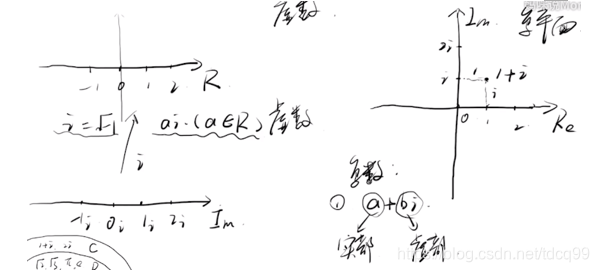 虚数
-1 0 1 2 R
i=√-1 ai.(a∈R) 虚数
i
-1i 0i 1i 2i Im
1+i 2i C
Im 复平面
2i
i 1 1+i
i
0 1 2 Re
复数:
① a+bi
实部 虚部
https://blog.csdn.net/tdcq99